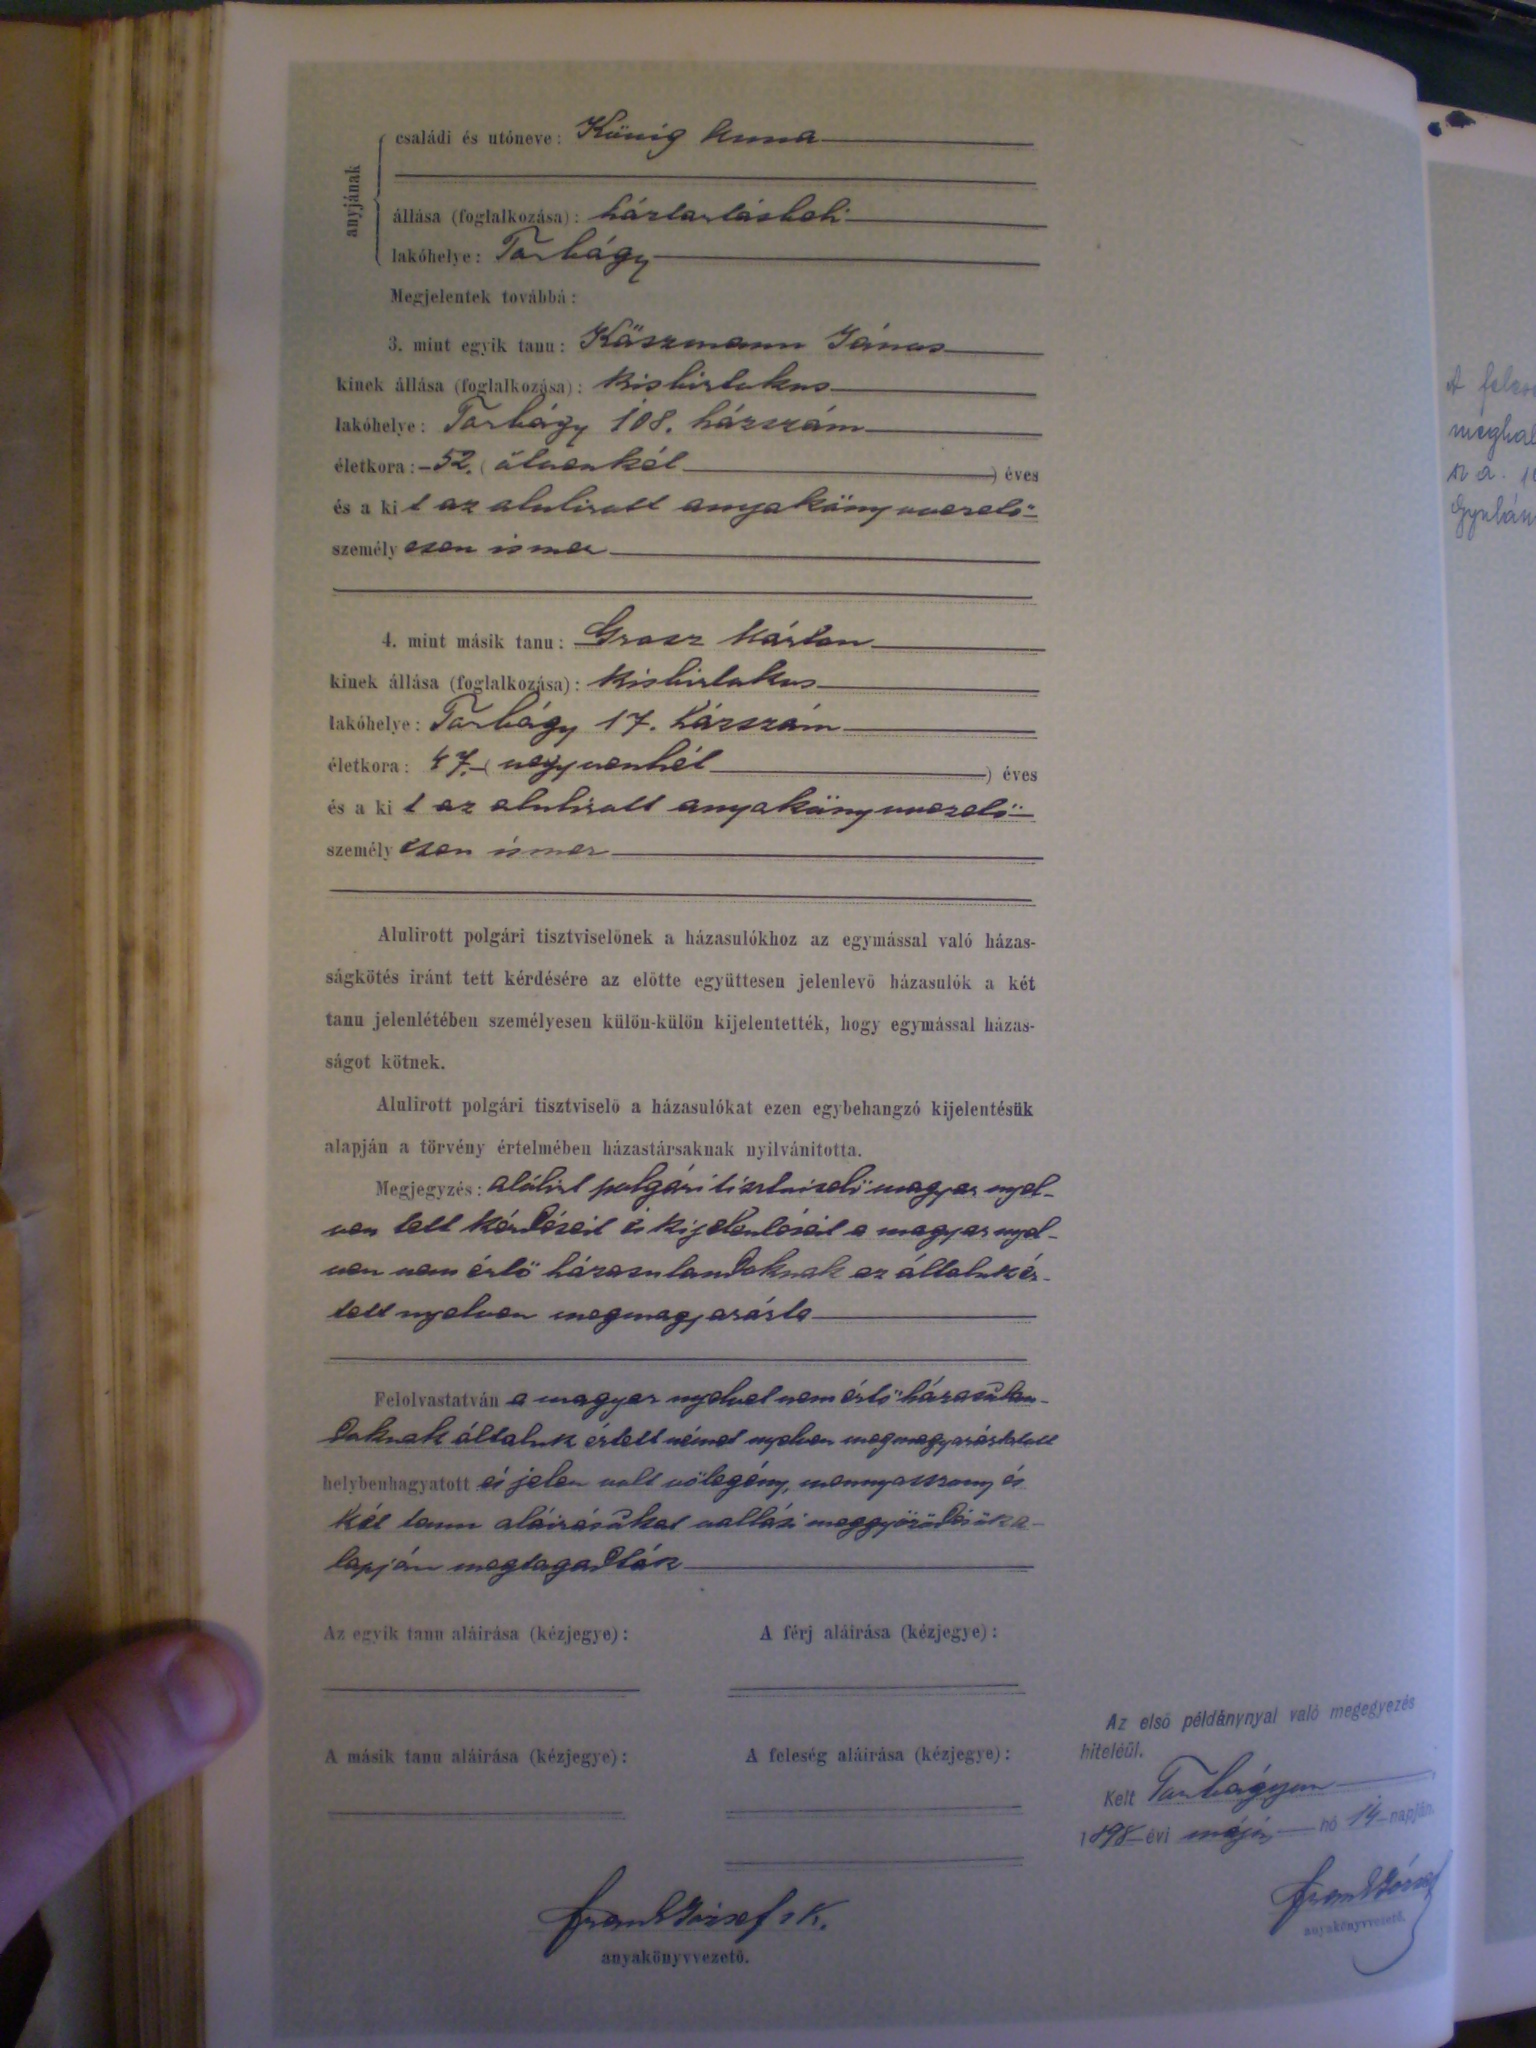 anyjának
családi és utóneve: König Anna
állása (foglalkozása): háztartásbeli
lakóhelye: Torbágy
Megjelentek továbbá:
3. mint egyik tanu: János
kinek állása (foglalkozása): kisbirtokos
lakóhelye: Torbágy 108. házszám
életkora: 52. (ötvenkét) éves
és a kit az alulirott anyakönyvvezető
személyesen ismer
4. mint másik tanu: Grosz Márton
kinek állása (foglalkozása): kisbirtokos
lakóhelye: Torbágy 17. házszám
életkora: 47. (negyvenhét) éves
és a kit az alulirott anyakönyvvezető
személyesen ismer
Alulirott polgári tisztviselőnek a házasulókhoz az egymással való házas-
ságkötés iránt tett kérdésére az előtte együttesen jelenlevő házasulók a két
tanu jelenlétében személyesen külön-külön kijelentették, hogy egymással házas-
ságot kötnek.
Alulirott polgári tisztviselő a házasulókat ezen egybehangzó kijelentésük
alapján a törvény értelmében házastársaknak nyilvánitotta.
Megjegyzés: alólirt polgári tisztviselő magyar nyel-
ven tett kérdéseit és kijelentéseit a magyar nyel-
ven nem értő házasulandoknak az általuk ér-
tett nyelven megmagyarázta
Felolvastatván a magyar nyelvet nem értő házasulan-
doknak általuk értett német nyelven megmagyaráztatott
helybenhagyatott és jelen volt vőlegény, mennyasszony és
két tanu aláirásukat vallási meggyőződésük a-
lapján megtagadták
Az egyik tanu aláirása (kézjegye): A férj aláirása (kézjegye):
A másik tanu aláirása (kézjegye): A feleség aláirása (kézjegye):
Frank József s K.
anyakönyvvezető.
Az első példánynyal való megegyezés
hiteléül.
Kelt Torbágyon
1898 évi május hó 14 napján.
Frank József
anyakönyvvezető.
A